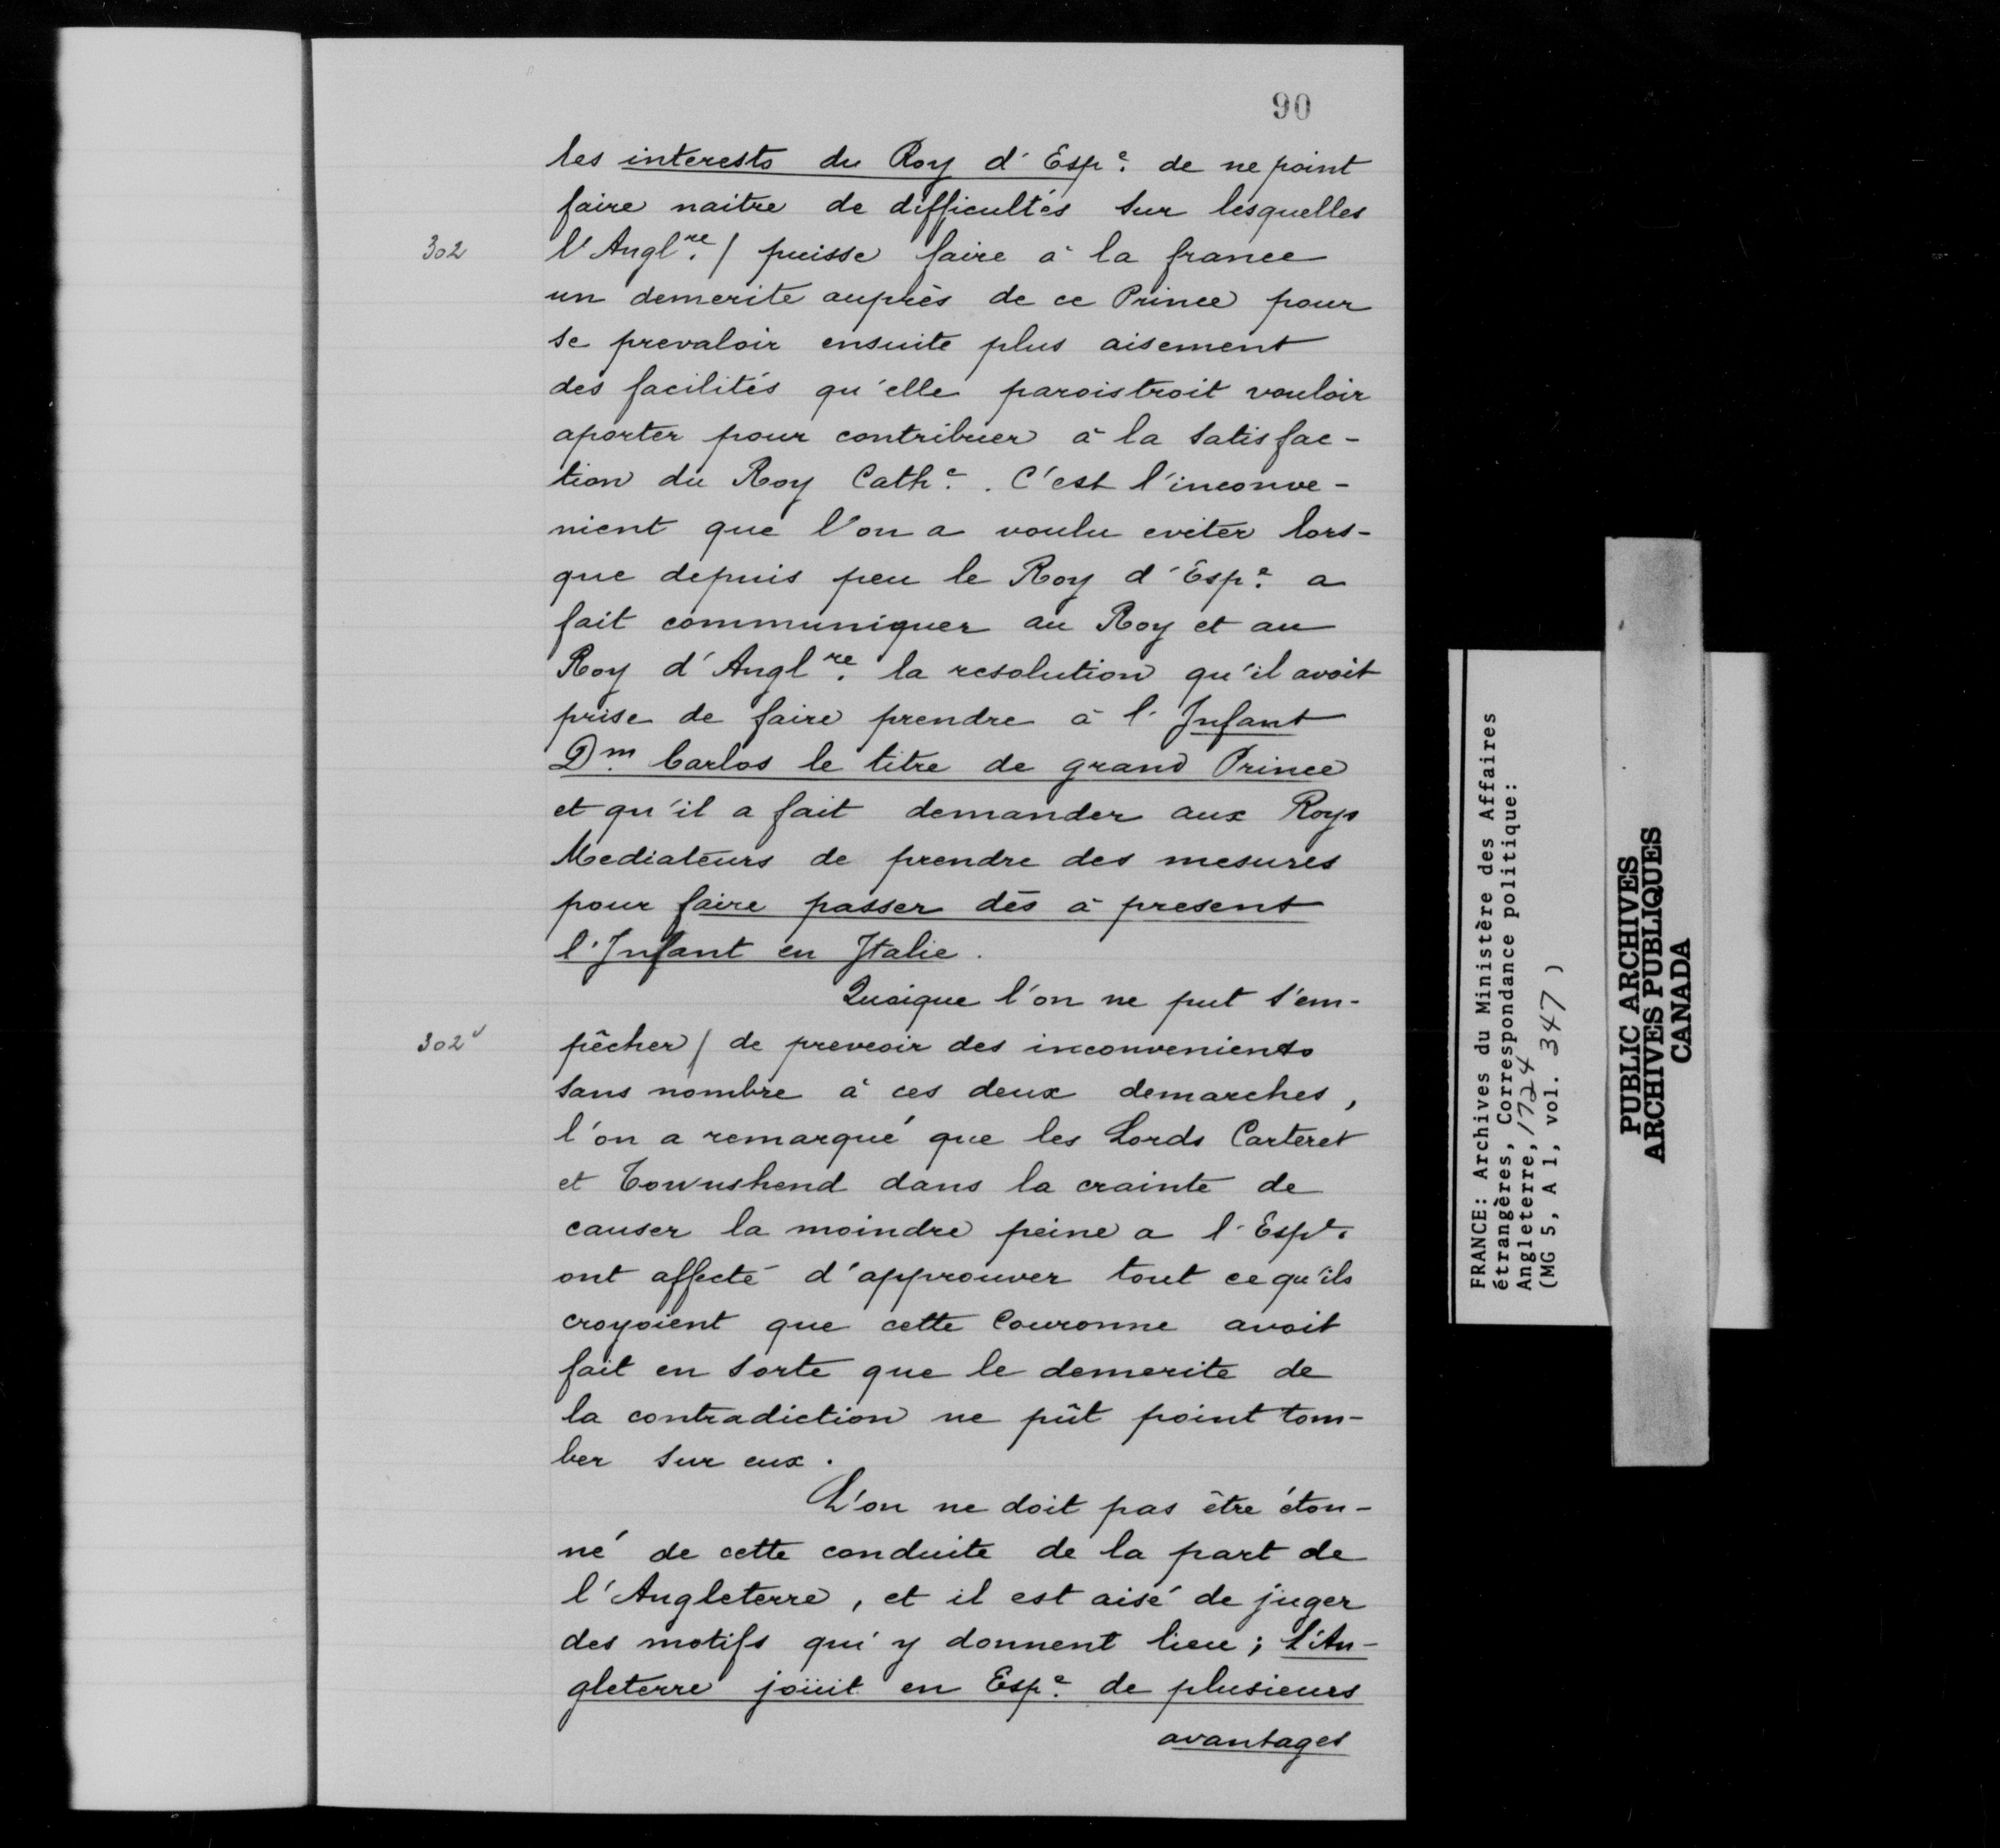 90
les interests du Roy d'Esp.e de ne point
faire naitre de difficultés sur lesquelles
302
l'Angl.re / puisse faire à la france
un demerite auprès de ce Prince pour
se prevaloir ensuite plus aisement
des facilités qu'elle paroistroit vouloir
aporter pour contribuer à la satisfac-
tion du Roy Cath.e. C'est l'inconve-
nient que l'on a voulu eviter lors-
que depuis peu le Roy d'Esp.e a
fait communiquer au Roy et au
Roy d'Angl.re la resolution qu'il avoit
prise de faire prendre à l'Infant
D.m Carlos le titre de grand Prince
et qu'il a fait demander aux Roys
Mediateurs de prendre des mesures
pour faire passer dès à present
l'Infant en Italie.
Quoique l'on ne put s'em-
302v
pêcher / de preveoir des inconvenients
sans nombre à ces deux demarches,
l'on a remarqué que les Lords Carteret
et Townshend dans la crainte de
causer la moindre peine a l'Esp.e
ont affecté d'approuver tout ce qu'ils
croyoient que cette Couronne avoit
fait en sorte que le demerite de
la contradiction ne pût point tom-
ber sur eux.
L'on ne doit pas être éton-
né de cette conduite de la part de
l'Angleterre, et il est aisé de juger
des motifs qui y donnent lieu; L'An-
gleterre joüit en Esp.e de plusieurs
avantages
FRANCE: Archives du Ministère des Affaires
étrangères, Correspondance politique:
Angleterre, 1724
(MG 5, A 1, vol. 347)
PUBLIC ARCHIVES
ARCHIVES PUBLIQUES
CANADA